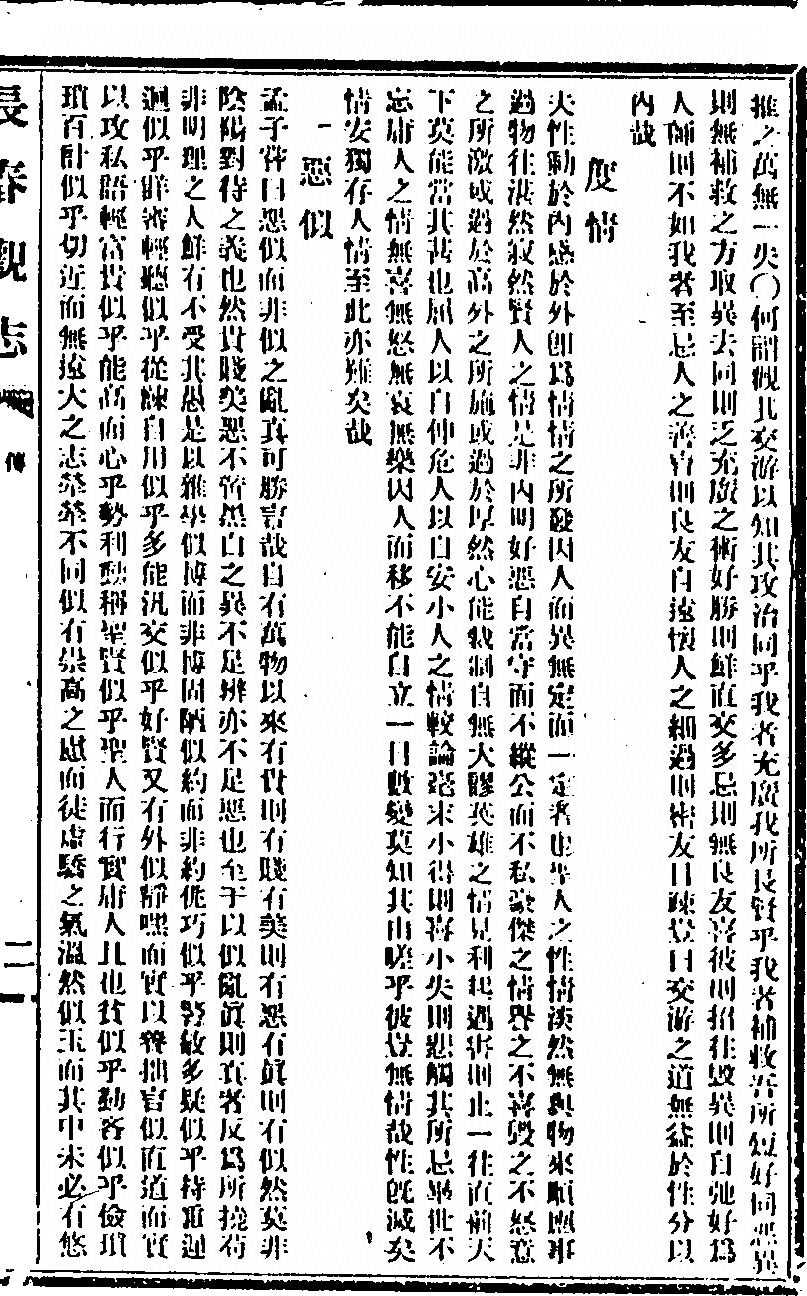 推之萬無一失〇何謂觀其交游以知其攻治同乎我者充廣我所長賢乎我者補救吾所短好同惡異
則無補救之方取異去同則乏充廣之術好勝則鮮直交多忌則無良友喜彼則招往毀異則自弛好爲
人師則不如我者至忌人之善言則良友自遠懷人之細過則密友日疎豈曰交游之道無益於性分以
內哉
度情
夫性動於內感於外卽爲情情之所發因人而異無定而一定者也聖人之性情淡然無與物來順應事
過物往湛然寂然賢人之情是非內明好惡自當守而不縱公而不私豪傑之情譽之不喜毀之不怒意
之所激或過於高外之所施或過於厚然心能救濟自無大謬英雄之情見利趨遇害則止一往直前天
下莫能當其甚也屈人以自伸危人以自安小人之情較論毫末小得則喜小失則怨觸其所忌舉世不
忘庸人之情無喜無怒無哀無樂因人而移不能自立一日數變莫知其由嗟乎彼豈無情哉性旣滅矣
情安獨存人情至此亦難矣哉
惡似
孟子嘗曰惡似而非似之亂真可勝言哉自有萬物以來有貴則有賤有美則有惡有眞則有似然莫非
陰陽對待之義也然貴賤美惡不啻黑白之異不足辨亦不足惡也至于以似亂眞則真者反爲所撓苟
非明理之人鮮有不受其愚是以雜舉似博而非博固陋似約而非約佻巧似乎警敏多疑似乎持重遲
迴似乎詳審輕聽似乎從諫自用似乎多能汎交似乎好賢又有外似靜嘿而實以養拙言似直道而實
以攻私語輕富貴似乎能高而心乎勢利動稱聖賢似乎聖人而行實庸人且也貧似乎勤吝似乎儉瑣
瑣百計似乎切近而無遠大之志落落不同似有崇高之慮而徒虛驕之氣溫然似玉而其中未必有悠
長春觀志
傳
二